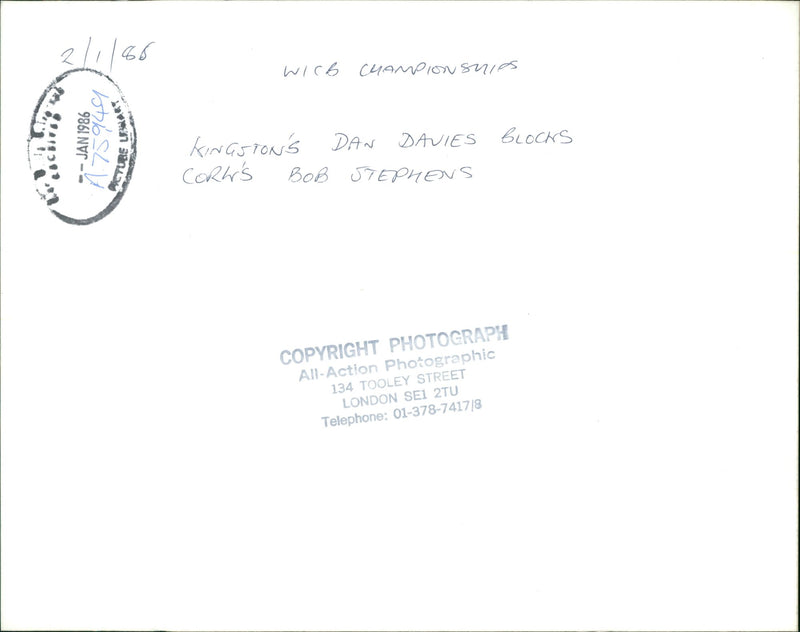 2/1/86
WICB CHAMPIONSHIPS
-- JAN 1986
A75949
PICTURE LIBRARY
KINGSTON'S DAN DAVIES BLOCKS
CORK'S BOB STEPHENS
COPYRIGHT PHOTOGRAPH
All-Action Photographic
134 TOOLEY STREET
LONDON SE1 2TU
Telephone: 01-378-7417/8